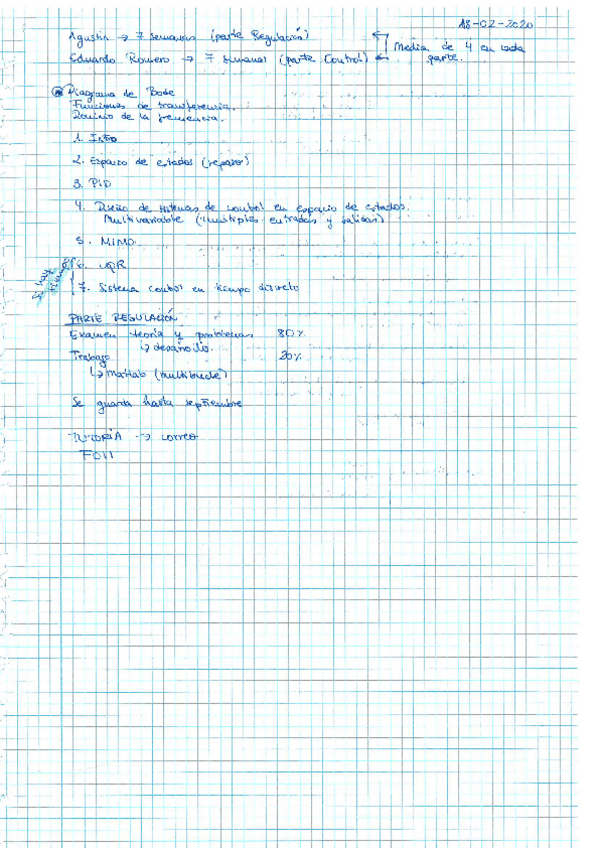 18-02-2020
Agustín → 7 semanas (parte Regulación)
Eduardo Romero → 7 semanas (parte Control)
Media de 4 en cada
parte.
Diagrama de Bode
Funciones de transferencia.
Dominio de la frecuencia.
1. Intro
2. Espacio de estados (repaso)
3. PID
4. Diseño de sistemas de control en espacio de estados.
Multivariable (múltiples entradas y salidas)
5. MIMO
Si hay
tiempo
6. LQR
7. Sistema control en tiempo discreto
PARTE REGULACIÓN
Examen teoría y problemas 80%
↳ desarrollo.
Trabajo 20%
↳ Matlab (multibucle)
Se guarda hasta septiembre
TUTORÍA → correo